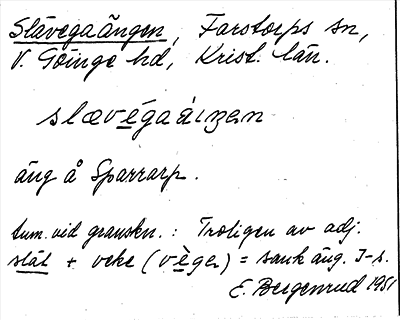 Slävegaängen, Farstorps sn,
V. Göinge hd, Krist. län.
slævégaàiŋen
äng å Sparrarp.
Anm. vid granskn.: Troligen av adj.
slät + veke (vègeꝛ) = sank äng. I-s.
E. Bergenrud 1951